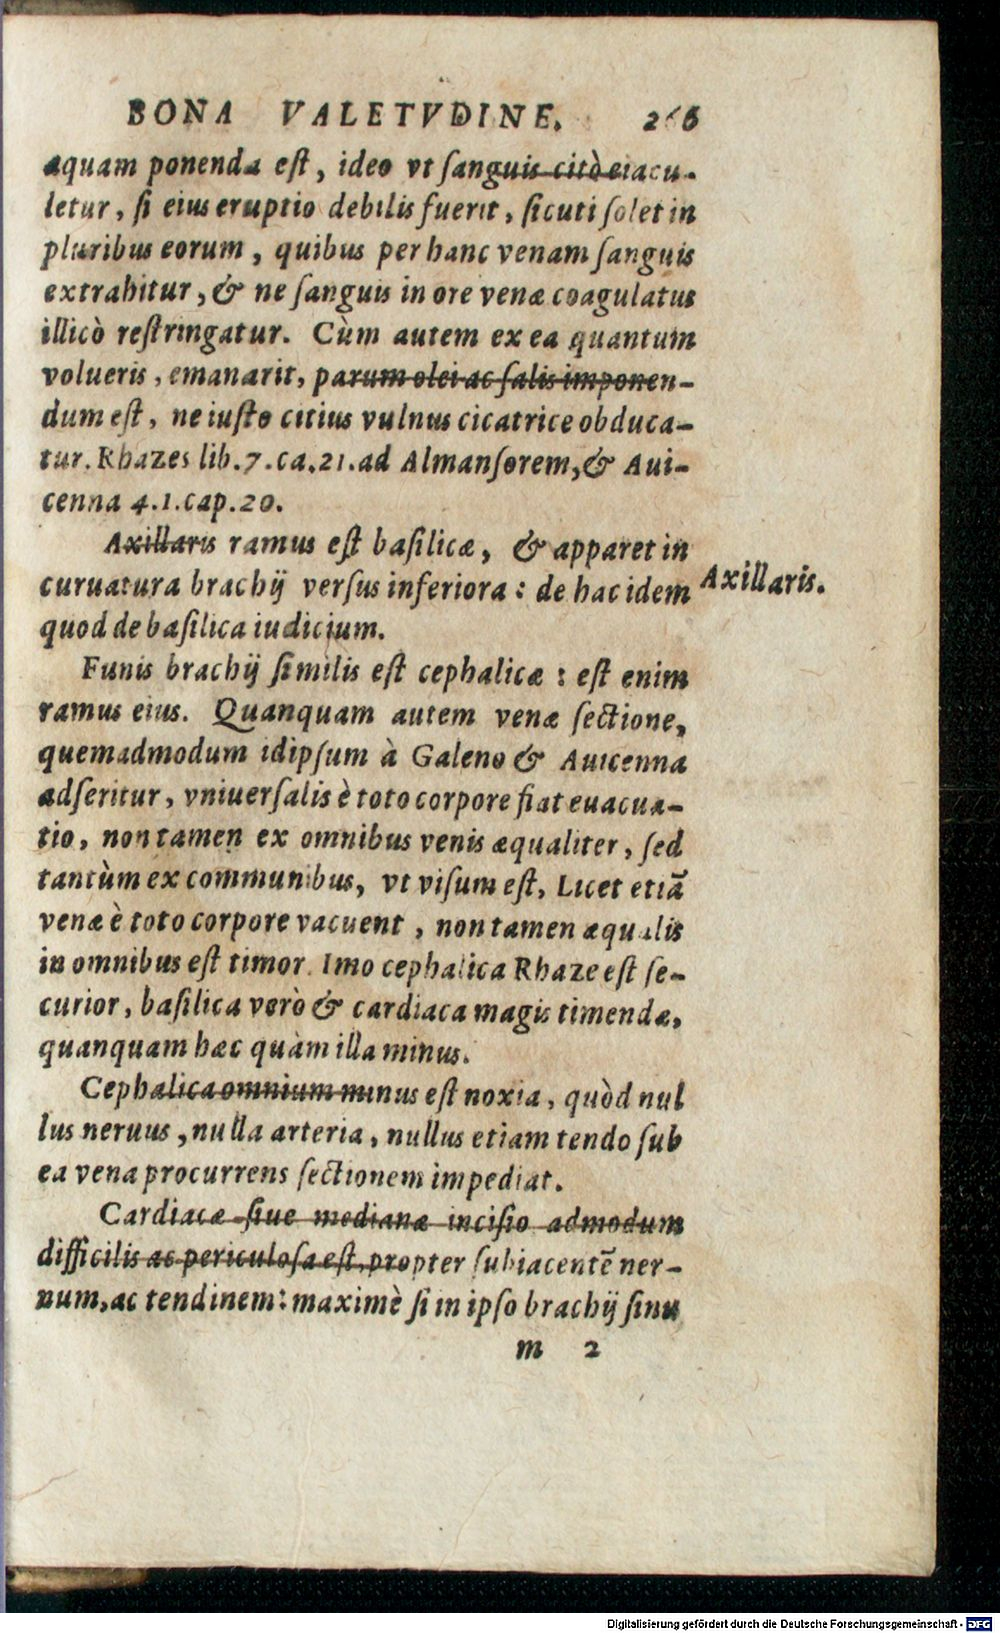 BONA VALETVDINE. 266
aquam ponenda eſt, ideo vt ſanguis citò eiacu-
letur, ſi eius eruptio debilis fuerit, ſicuti ſolet in
pluribus eorum, quibus per hanc venam ſanguis
extrahitur, & ne ſanguis in ore venæ coagulatus
illicò reſtringatur. Cùm autem ex ea quantum
volueris, emanarit, parum olei ac ſalis imponen-
dum eſt, ne iuſto citius vulnus cicatrice obduca-
tur. Rhazes lib. 7. ca. 21. ad Almanſorem, & Aui-
cenna 4.1. cap. 20.
Axillaris ramus eſt baſilicæ, & apparet in
curuatura brachij verſus inferiora: de hac idem
Axillaris.
quod de baſilica iudicium.
Funis brachij ſimilis eſt cephalicæ: eſt enim
ramus eius. Quanquam autem venæ ſectione,
quemadmodum idipſum à Galeno & Auicenna
adſeritur, vniuerſalis è toto corpore fiat euacua-
tio, non tamen ex omnibus venis æqualiter, ſed
tantùm ex communibus, vt viſum eſt. Licet etiã
venæ è toto corpore vacuent, non tamen æqualis
in omnibus eſt timor. Imo cephalica Rhaze eſt ſe-
curior, baſilica verò & cardiaca magis timendæ,
quanquam hæc quàm illa minus.
Cephalica omnium minus eſt noxia, quòd nul
lus neruus, nulla arteria, nullus etiam tendo ſub
ea vena procurrens ſectionem impediat.
Cardiacæ ſiue medianæ inciſio admodum
difficilis ac periculoſa eſt, propter ſubiacentẽ ner-
num, ac tendinem: maximè ſi in ipſo brachij ſinu
m 2
Digitalisierung gefördert durch die Deutsche Forschungsgemeinschaft - DFG